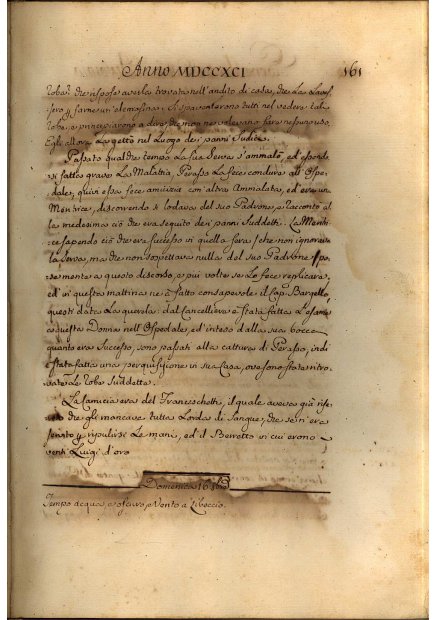 Anno MDCCXCI 161
roba? che rispose averle trovate nell'andito di casa, che La Lavasse
sero, e farne un elemosina: si spaventorono tutti nel vedere tal
roba, e principiarono a dire che non ne volevano fare nesun uso,
Egli allora La gettò nel Luogo dei panni Sudici.
Passato qualche tempo La sua Serva s'ammalò, ed essendo
si fatta grave La Malattia, Perasso La fece condurre all'Ospe
dale, quivi essa fece amicizia con altra Ammalata, ed era un
Meretrice, discorrendo si Lodava del suo Padrone, e Raccontò al
la medesima ciò che era seguito dei panni Suddetti. La Meretri
ce sapendo ciò che era successo in quella sera (che non ignorava
la Serva, ma che non sospettava nulla del suo Padrone)
se mente a questo discorso, e più volte se Lo fece replicare,
ed in questa mattina ne à fatto consapevole il Cap. Bargello,
questi data La querela: dal Cancelliere è stata fatta L'esame
a questa Donna nell'Ospedale, ed inteso dalla sua bocca
quanto era Successo, sono passati alla cattura di Perasso, indi
è stata fatta una perquisizione in sua Casa, ove sono state ritro
vate Le robe Suddette.
La camicia era del Franceschetti, il quale aveva già rife
rito che gli mancava, tutta Lorda di Sangue, che se n'era
servito a ripulirsi Le mani, ed il Berretto in cui erono
venti Luigi d'oro
Domenica 16
Tempo acqua, e oscuro, e Vento a Libeccio.